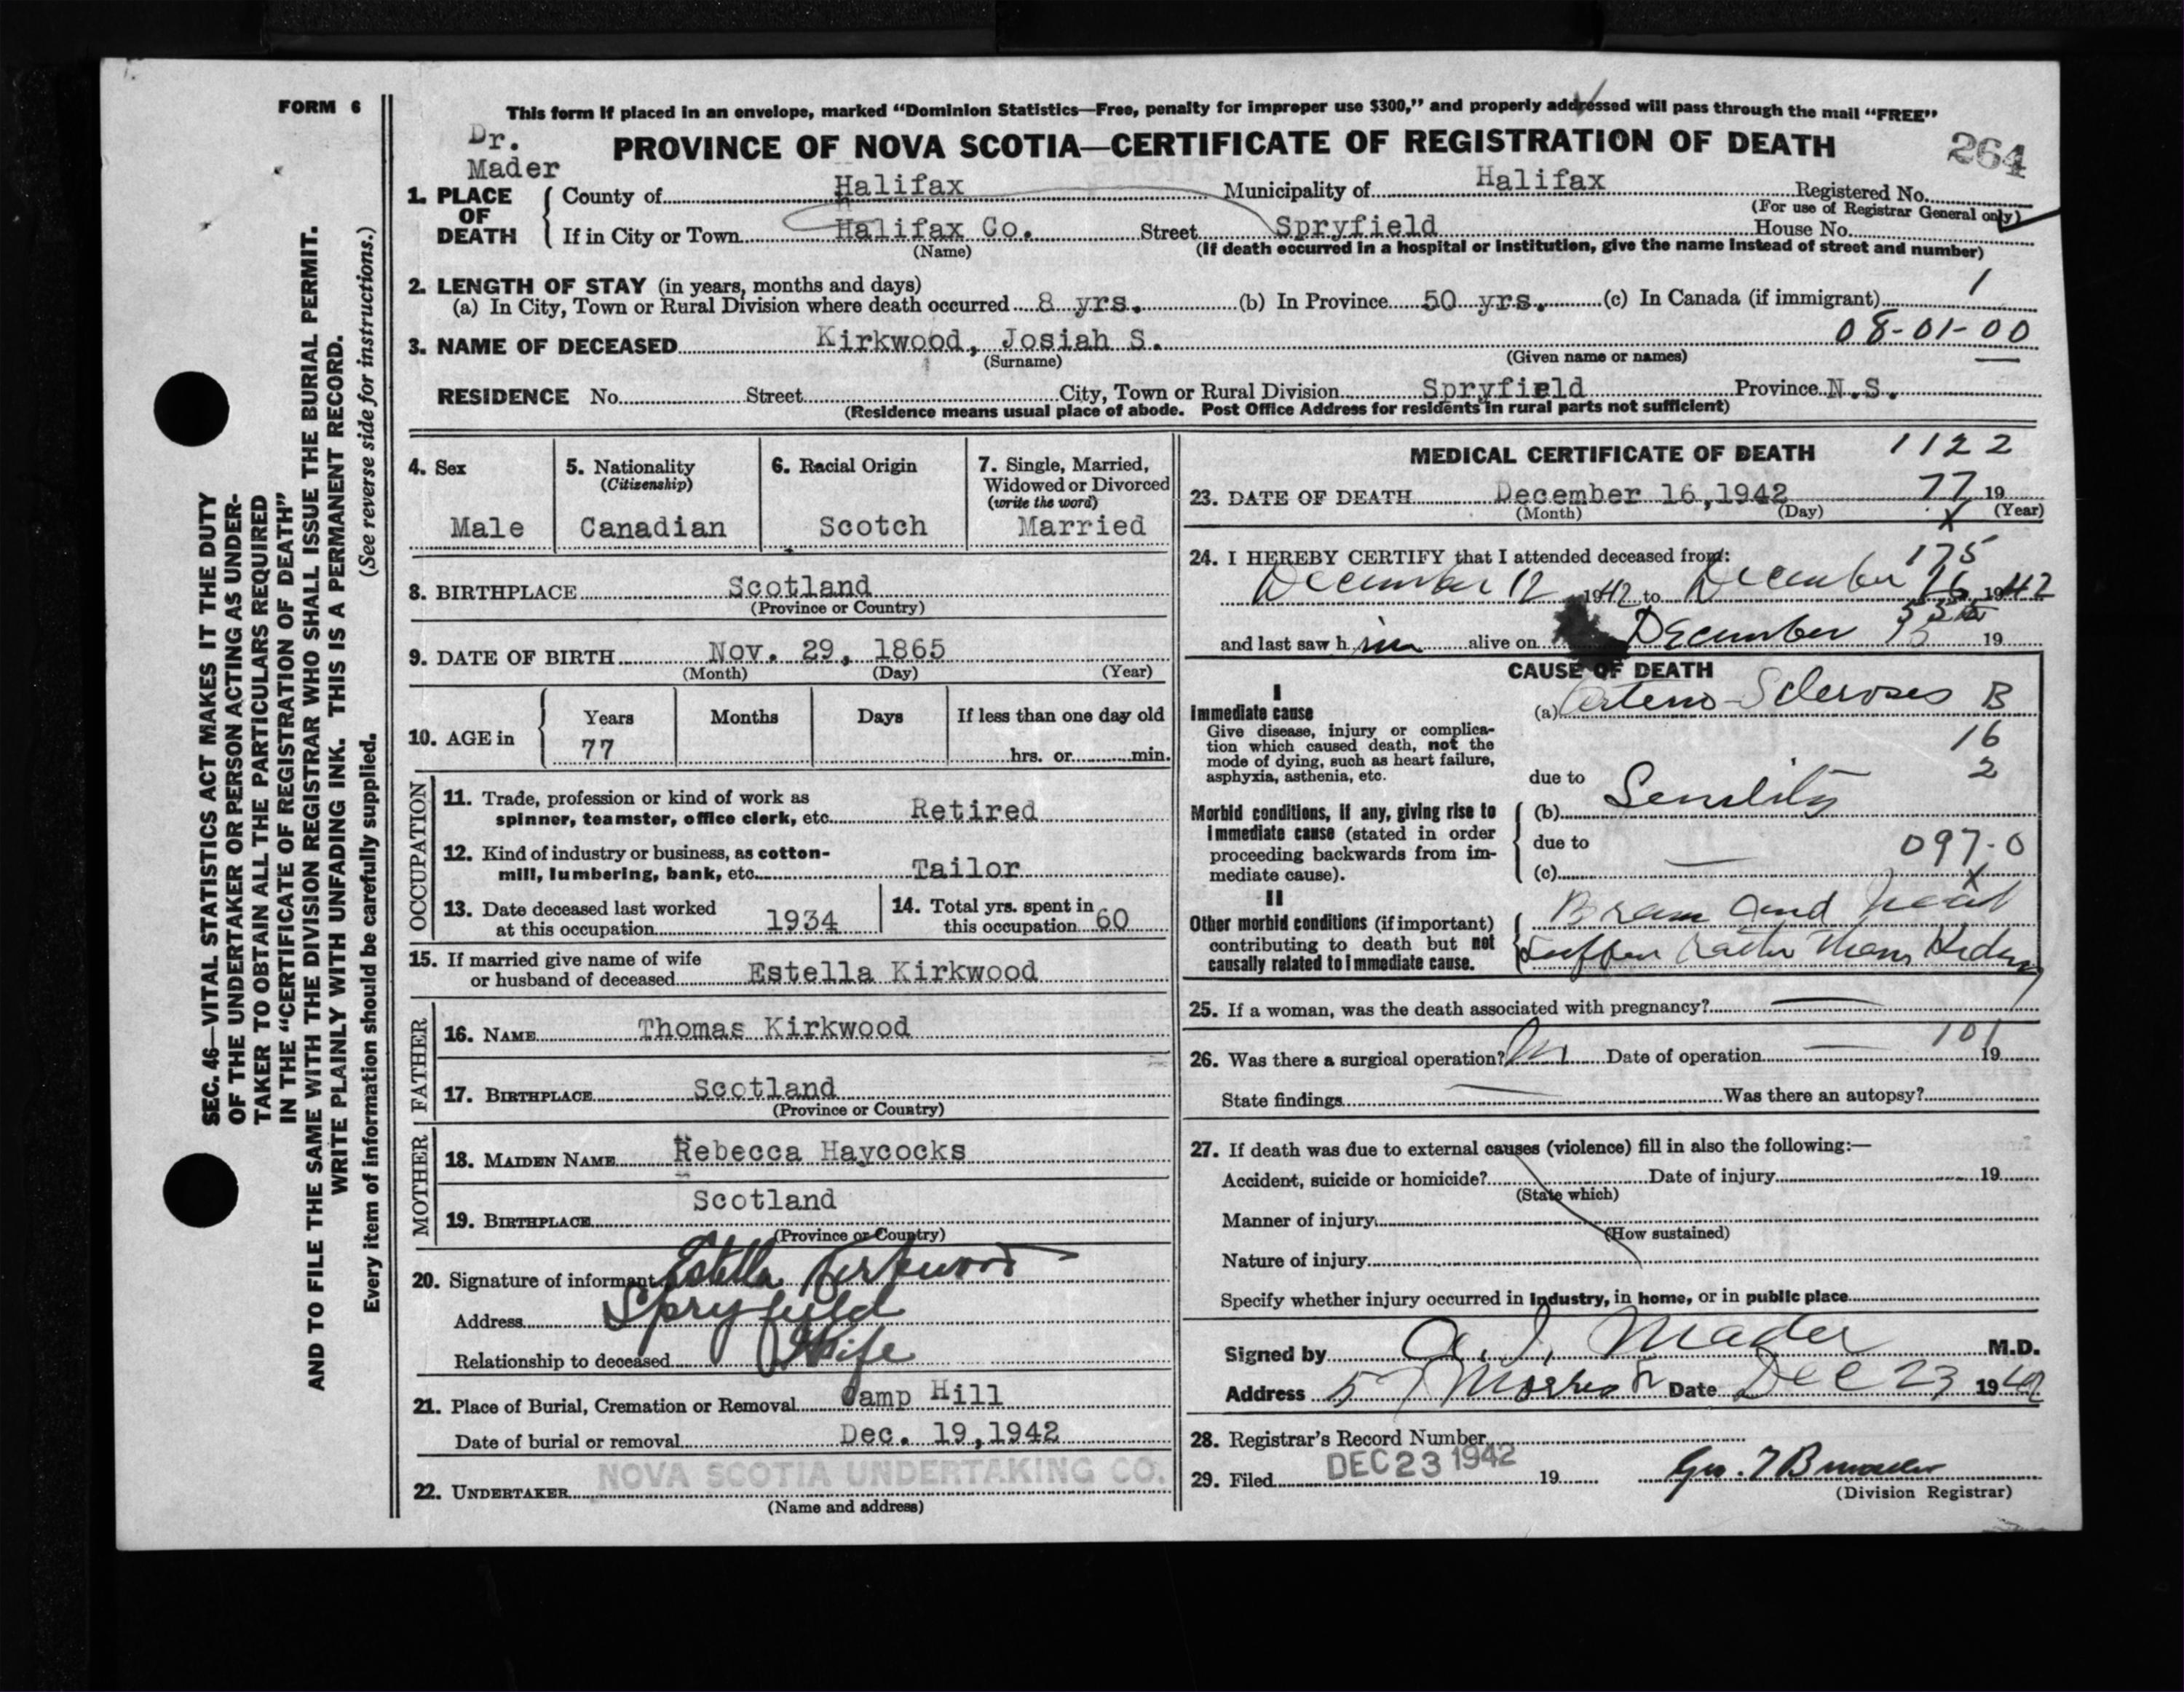 FORM 6
This form if placed in an envelope, marked “Dominion Statistics—Free, penalty for improper use $300,” and properly addressed will pass through the mail “FREE”
Dr.
Mader
PROVINCE OF NOVA SCOTIA—CERTIFICATE OF REGISTRATION OF DEATH
264
1. PLACE OF DEATH
County of Halifax Municipality of Halifax Registered No.
(For use of Registrar General only)
If in City or Town Halifax Co. Street Spryfield House No.
(Name) (If death occurred in a hospital or institution, give the name instead of street and number)
2. LENGTH OF STAY (in years, months and days)
(a) In City, Town or Rural Division where death occurred 8 yrs. (b) In Province 50 yrs. (c) In Canada (if immigrant) 1
08-01-00
3. NAME OF DECEASED Kirkwood, Josiah S.
(Surname) (Given name or names)
RESIDENCE No. Street City, Town or Rural Division Spryfield Province N.S.
(Residence means usual place of abode. Post Office Address for residents in rural parts not sufficient)
4. Sex
Male
5. Nationality
(Citizenship)
Canadian
6. Racial Origin
Scotch
7. Single, Married,
Widowed or Divorced
(write the word)
Married
8. BIRTHPLACE Scotland
(Province or Country)
9. DATE OF BIRTH Nov. 29, 1865
(Month) (Day) (Year)
10. AGE in
Years Months Days If less than one day old
77 hrs. or min.
OCCUPATION
11. Trade, profession or kind of work as
spinner, teamster, office clerk, etc. Retired
12. Kind of industry or business, as cotton-
mill, lumbering, bank, etc. Tailor
13. Date deceased last worked
at this occupation 1934
14. Total yrs. spent in
this occupation 60
15. If married give name of wife
or husband of deceased Estella Kirkwood
FATHER
16. NAME Thomas Kirkwood
17. BIRTHPLACE Scotland
(Province or Country)
MOTHER
18. MAIDEN NAME Rebecca Haycocks
19. BIRTHPLACE Scotland
(Province or Country)
20. Signature of informant Estella Kirkwood
Address Spryfield
Relationship to deceased Wife
21. Place of Burial, Cremation or Removal Camp Hill
Date of burial or removal Dec. 19, 1942
22. UNDERTAKER NOVA SCOTIA UNDERTAKING CO.
(Name and address)
MEDICAL CERTIFICATE OF DEATH
1122
23. DATE OF DEATH December 16, 1942 77 19
(Month) (Day) (Year)
x
24. I HEREBY CERTIFY that I attended deceased from:
175
December 12 1942 to December 16 1942
and last saw him alive on December 15 19
CAUSE OF DEATH
I
Immediate cause
Give disease, injury or complica-
tion which caused death, not the
mode of dying, such as heart failure,
asphyxia, asthenia, etc.
(a) Arterio-Scleroses B
16
2
due to
Morbid conditions, if any, giving rise to
immediate cause (stated in order
proceeding backwards from im-
mediate cause).
(b) Senility
due to
097-0
(c) —
x
II
Other morbid conditions (if important)
contributing to death but not
causally related to immediate cause.
Brain and heart
rather than Kidney
25. If a woman, was the death associated with pregnancy? —
101
26. Was there a surgical operation? No Date of operation — 19
State findings — Was there an autopsy?
27. If death was due to external causes (violence) fill in also the following:—
Accident, suicide or homicide? Date of injury 19
(State which)
Manner of injury
(How sustained)
Nature of injury
Specify whether injury occurred in industry, in home, or in public place
Signed by Mader M.D.
Address 57 Morris St Date Dec 23 1942
28. Registrar's Record Number
29. Filed DEC 23 1942 19
(Division Registrar)
SEC. 46—VITAL STATISTICS ACT MAKES IT THE DUTY
OF THE UNDERTAKER OR PERSON ACTING AS UNDER-
TAKER TO OBTAIN ALL THE PARTICULARS REQUIRED
IN THE “CERTIFICATE OF REGISTRATION OF DEATH”
AND TO FILE THE SAME WITH THE DIVISION REGISTRAR WHO SHALL ISSUE THE BURIAL PERMIT.
WRITE PLAINLY WITH UNFADING INK. THIS IS A PERMANENT RECORD.
Every item of information should be carefully supplied. (See reverse side for instructions.)